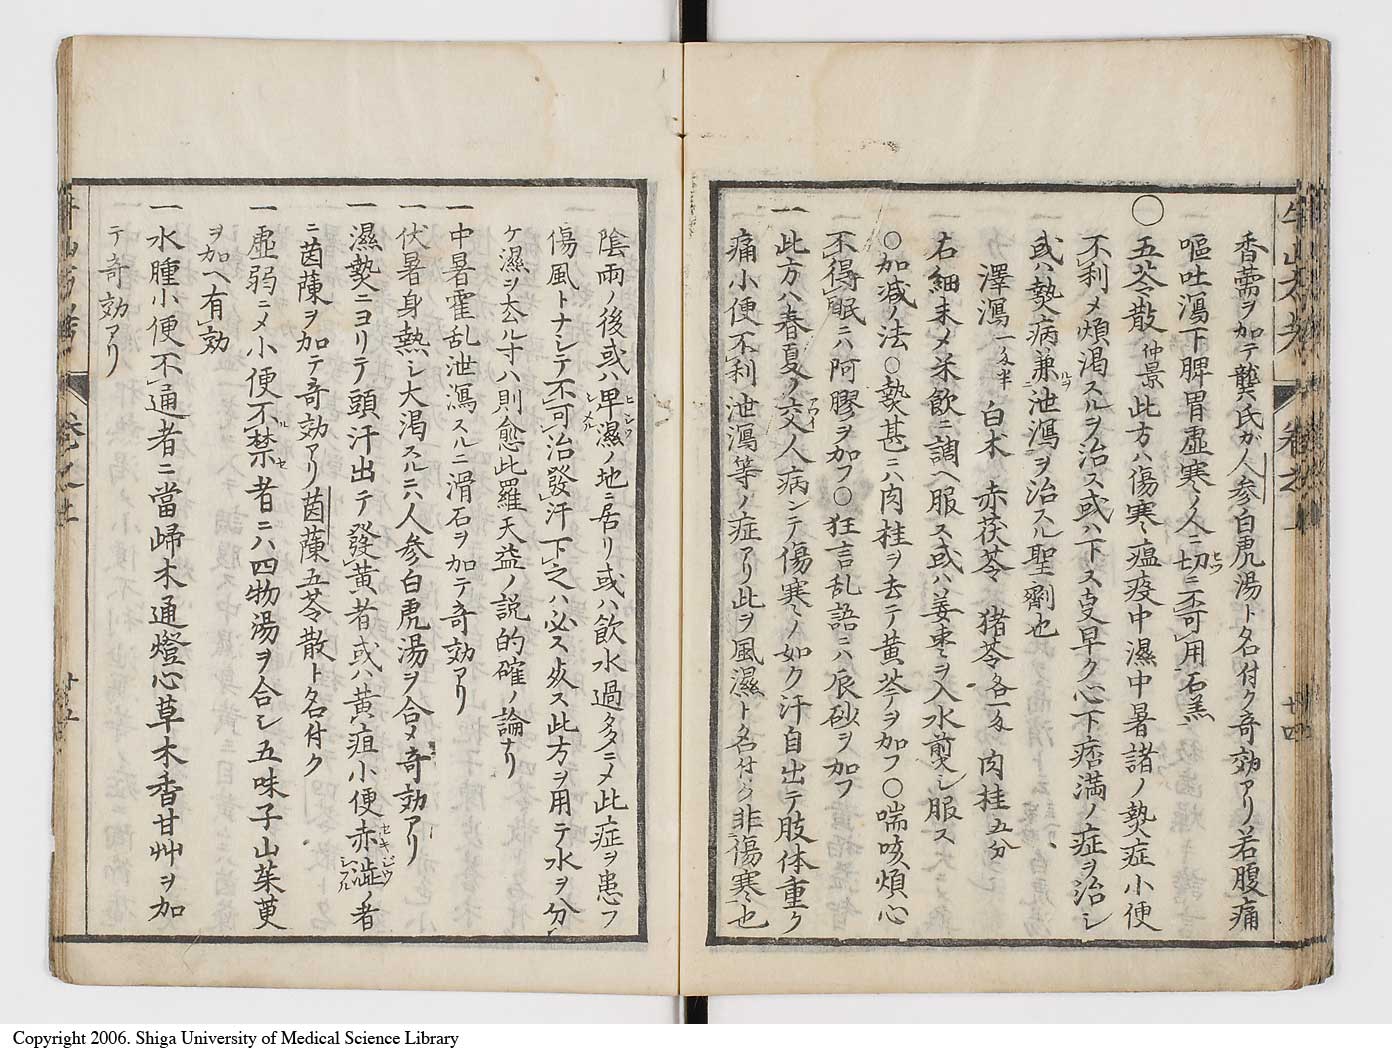 香薷ヲ加テ龔氏ガ人参白虎湯ト名付ク奇効アリ若腹痛
嘔吐瀉下脾胃虚寒ノ人一切ニ不可用石羔
〇五苓散 仲景 此方ハ傷寒瘟疫中濕中暑諸ノ𤍠症小便
不利メ煩渇スルヲ治ス或ハ下ス支早ク心下痞満ノ症ヲ治シ
或ハ𤍠病兼泄瀉ヲ治スル聖劑也
澤瀉 一匁半 白朮 赤茯苓 猪苓各一匁 肉桂五分
右細末メ米飲ニ調ヘ服ス或ハ姜枣ヲ入水煎シ服ス
〇加減ノ法〇𤍠甚ニハ肉桂ヲ去テ黄芩ヲ加フ〇喘咳煩心
不得眠ニハ阿膠ヲ加フ〇狂言乱語ニハ辰砂ヲ加フ
一此方ハ春夏ノ交人病ンテ傷寒ノ如ク汗自出テ肢体重ク
痛小便不利泄瀉等ノ症アリ此ヲ風濕ト名付ク非傷寒也
陰雨ノ後或ハ卑濕ノ地ニ居リ或ハ飲水過多ニメ此症ヲ患フ
傷風トナシテ不可治發汗下之ハ必ス死ス此方ヲ用テ水ヲ分
ケ濕ヲ去ル寸ハ則愈此羅天益ノ説的確ノ論ナリ
一中暑霍乱泄瀉スルニ滑石ヲ加テ奇効アリ
一伏暑身熱シ大渇スルニハ人参白虎湯ヲ合メ奇効アリ
一濕𤍠ニヨリテ頭汗出テ發黄者或ハ黄疸小便赤澁ノ者
ニ茵蔯ヲ加テ奇効アリ茵蔯五苓散ト名付ク
一虚弱ニメ小便不禁者ニハ四物湯ヲ合シ五味子山茱萸
ヲ加ヘ有効
一水腫小便不通者ニ當歸木通燈心草木香甘艸ヲ加
テ奇効アリ
Copyright 2006. Shiga University of Medical Science Library